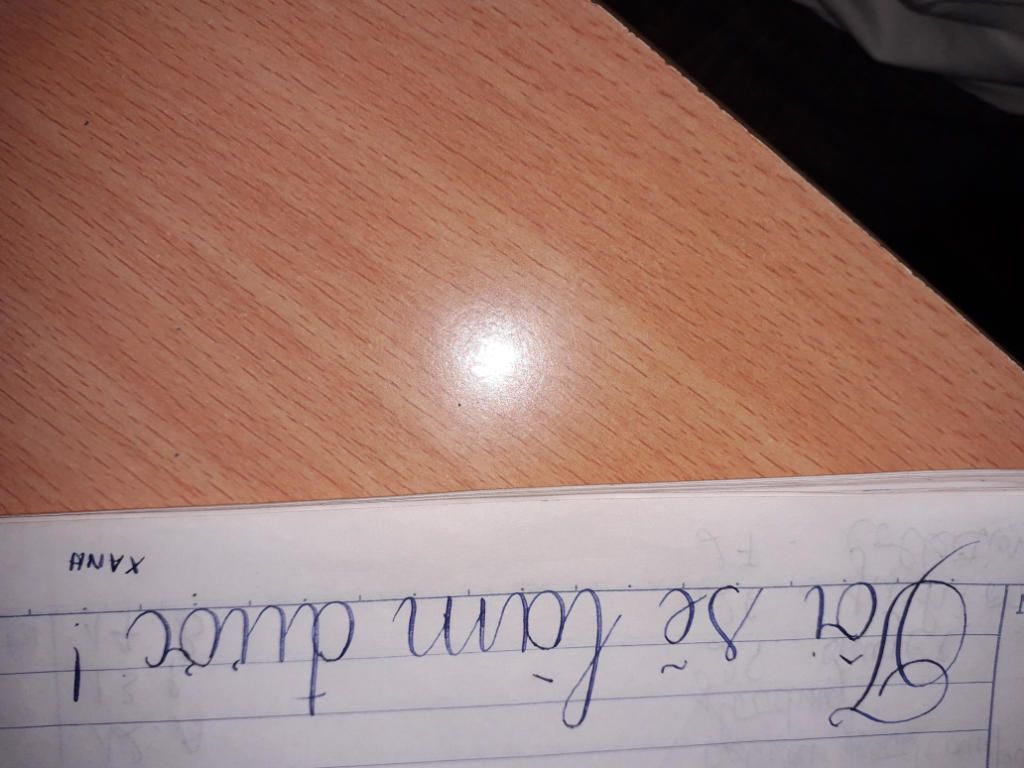 Tôi sẽ làm được!
XANH